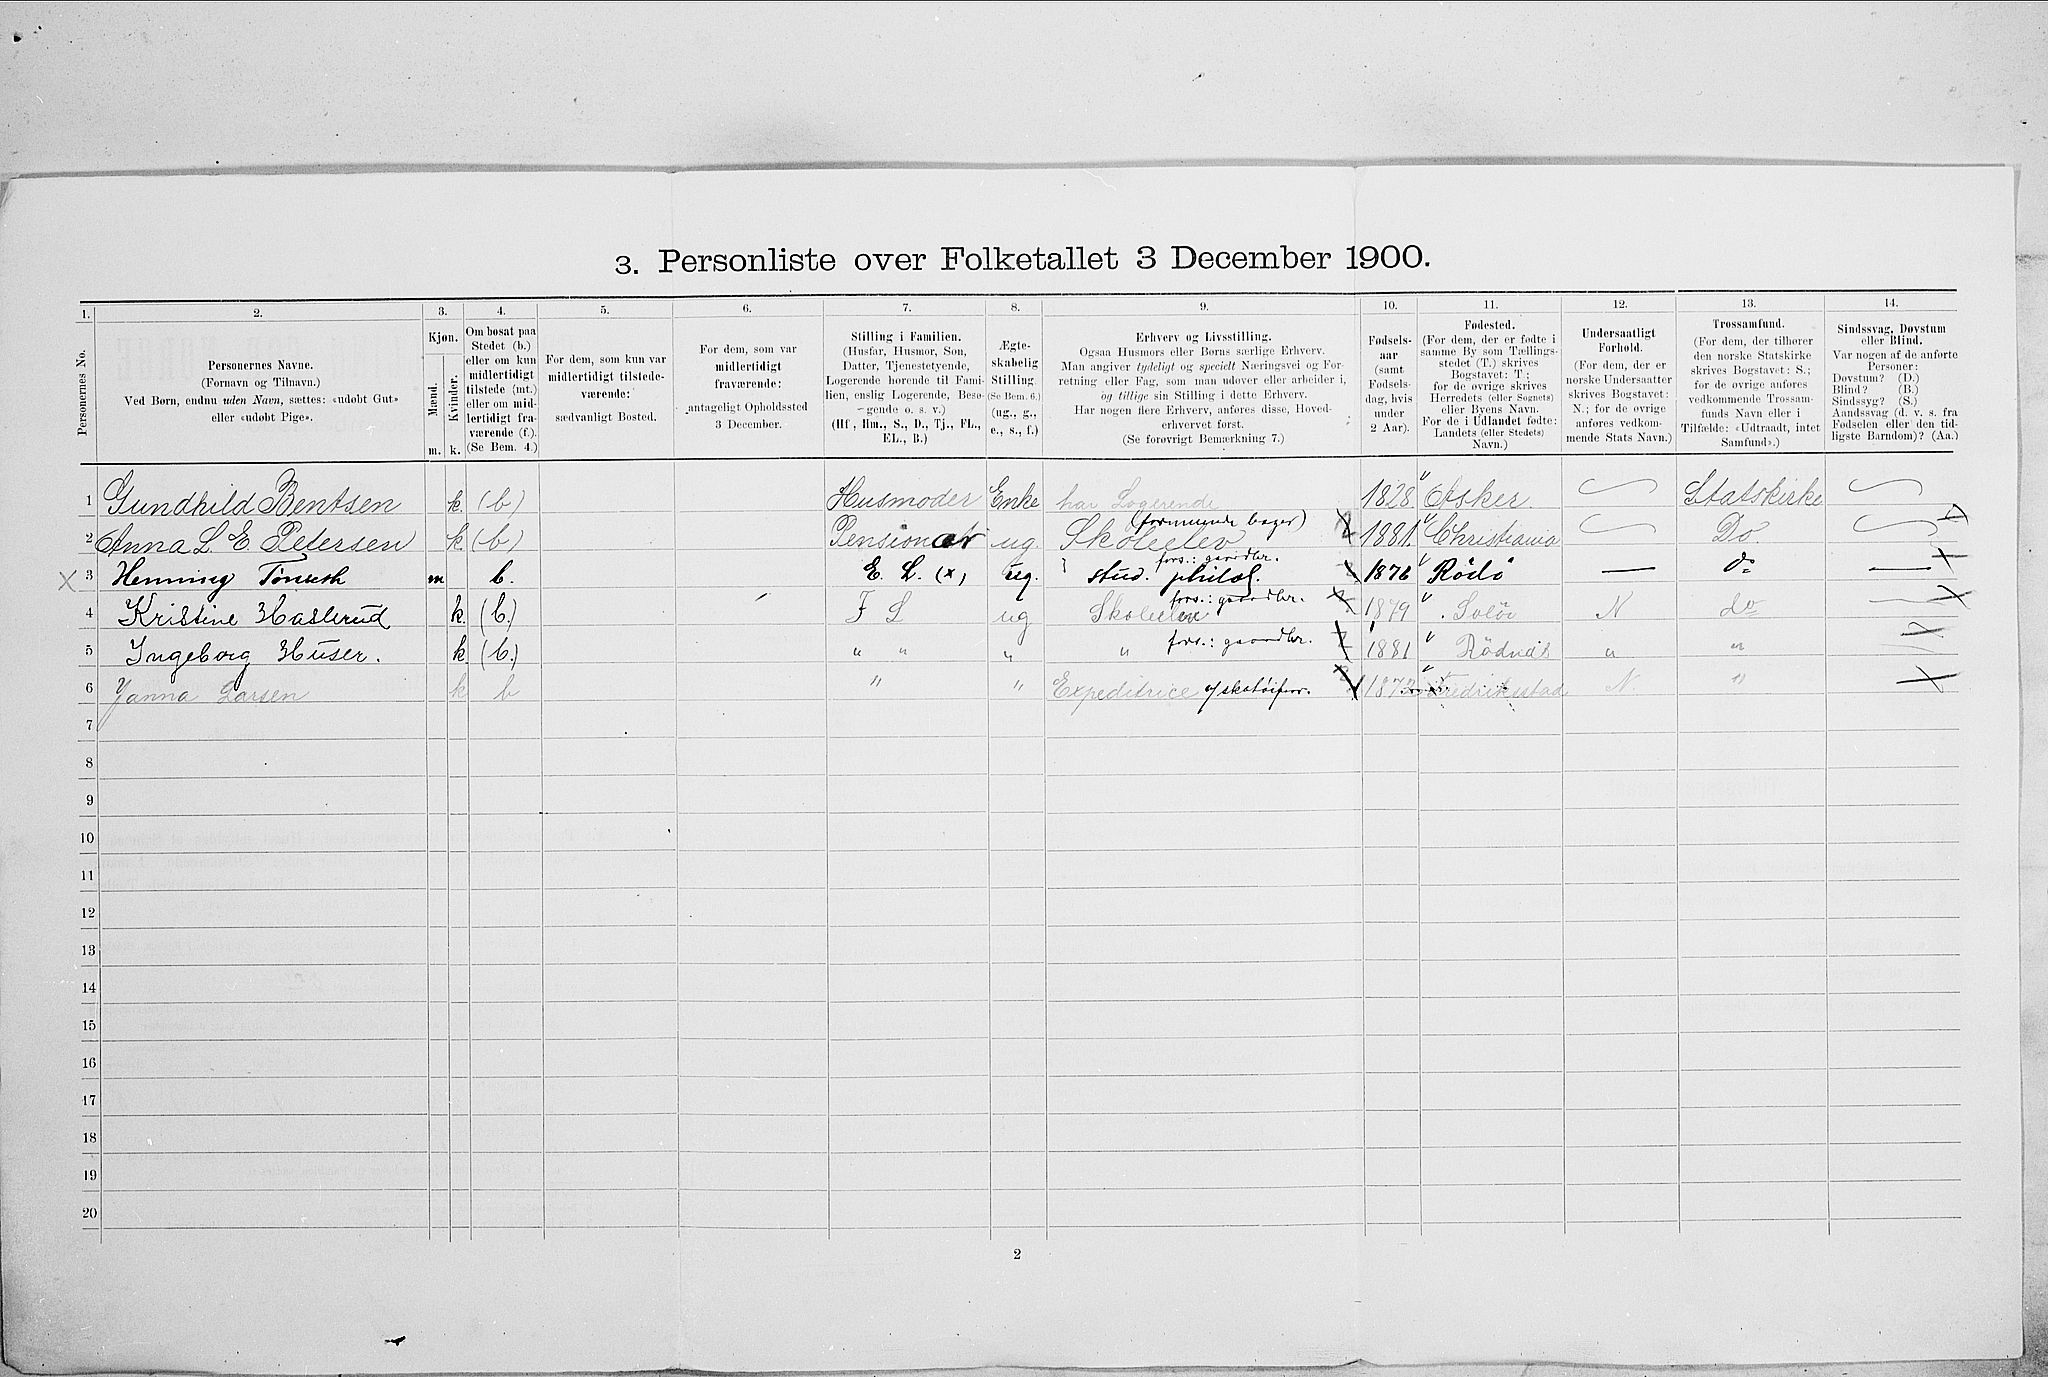 3. Personliste over Folketallet 3 December 1900.
1. 2. 3. 4. 5. 6. 7. 8. 9. 10. 11. 12. 13. 14.
Personernes No.
Personernes Navne.
(Fornavn og Tilnavn.)
Ved Børn, endnu uden Navn, sættes: «udøbt Gut»
eller «udøbt Pige».
Kjøn.
Mænd.
Kvinder.
m. k.
Om bosat paa
Stedet (b.)
eller om kun
midlertidigt
tilstede (mt.)
eller om mid-
lertidigt fra-
værende (f.).
(Se Bem. 4.)
For dem, som kun var
midlertidigt tilstede-
værende:
sædvanligt Bosted.
For dem, som var
midlertidigt
fraværende:
antageligt Opholdssted
3 December.
Stilling i Familien.
(Husfar, Husmor, Søn,
Datter, Tjenestetyende,
Logerende hørende til Fami-
lien, enslig Logerende, Besø-
gende o. s. v.)
(Hf., Hm., S., D., Tj., FL.,
EL., B.)
Ægte-
skabelig
Stilling.
(Se Bem. 6.)
(ug., g.,
e., s., f.)
Erhverv og Livsstilling.
Ogsaa Husmors eller Børns særlige Erhverv.
Man angiver tydeligt og specielt Næringsvei og For-
retning eller Fag, som man udøver eller arbeider i,
og tillige sin Stilling i dette Erhverv.
Har nogen flere Erhverv, anføres disse, Hoved-
erhvervet først.
(Se forøvrigt Bemærkning 7.)
Fødsels-
aar
(samt
Fødsels-
dag, hvis
under
2 Aar).
Fødested.
(For dem, der er fødte i
samme By som Tællings-
stedet (T.) skrives
Bogstavet: T;
for de øvrige skrives
Herredets (eller Sognets)
eller Byens Navn.
For de i Udlandet fødte:
Landets (eller Stedets)
Navn.)
Undersaatligt
Forhold.
(For dem, der er
norske Undersaatter
skrives Bogstavet:
N.; for de øvrige
anføres vedkom-
mende Stats Navn.)
Trossamfund.
(For dem, der tilhører
den norske Statskirke
skrives Bogstavet: S.;
for de øvrige anføres
vedkommende Trossam-
funds Navn eller i
Tilfælde: «Udtraadt, intet
Samfund».)
Sindssvag, Døvstum
eller Blind.
Var nogen af de anførte
Personer:
Døvstum? (D.)
Blind? (B.)
Sindssyg? (S.)
Aandssvag (d. v. s. fra
Fødselen eller den tid-
ligste Barndom)? (Aa.)
1 Gundhild Bentsen k. (b) Husmoder Enke har Logerende 1828. Asker. Statskirke
2 Anna L. E. Petersen k. (b) Pensionær ug. Skoleelev 1881. Christiania Do.
X 3 Henning m b. E. L. (x) ug. stud. philol. fors.: gaardbr. 1876 Rödö do
4 Kristine Haslerud k. (b.) F L ug Skoleelev fors.: gaardbr. 1879 Solör N do
5 Ingeborg Huser. k. (b.) " " " " fors.: gaardbr. 1881 " "
6 Janna Larsen k b " " Expeditrice Fredriksstad N. "
7
8
9
10
11
12
13
14
15
16
17
18
19
20
2